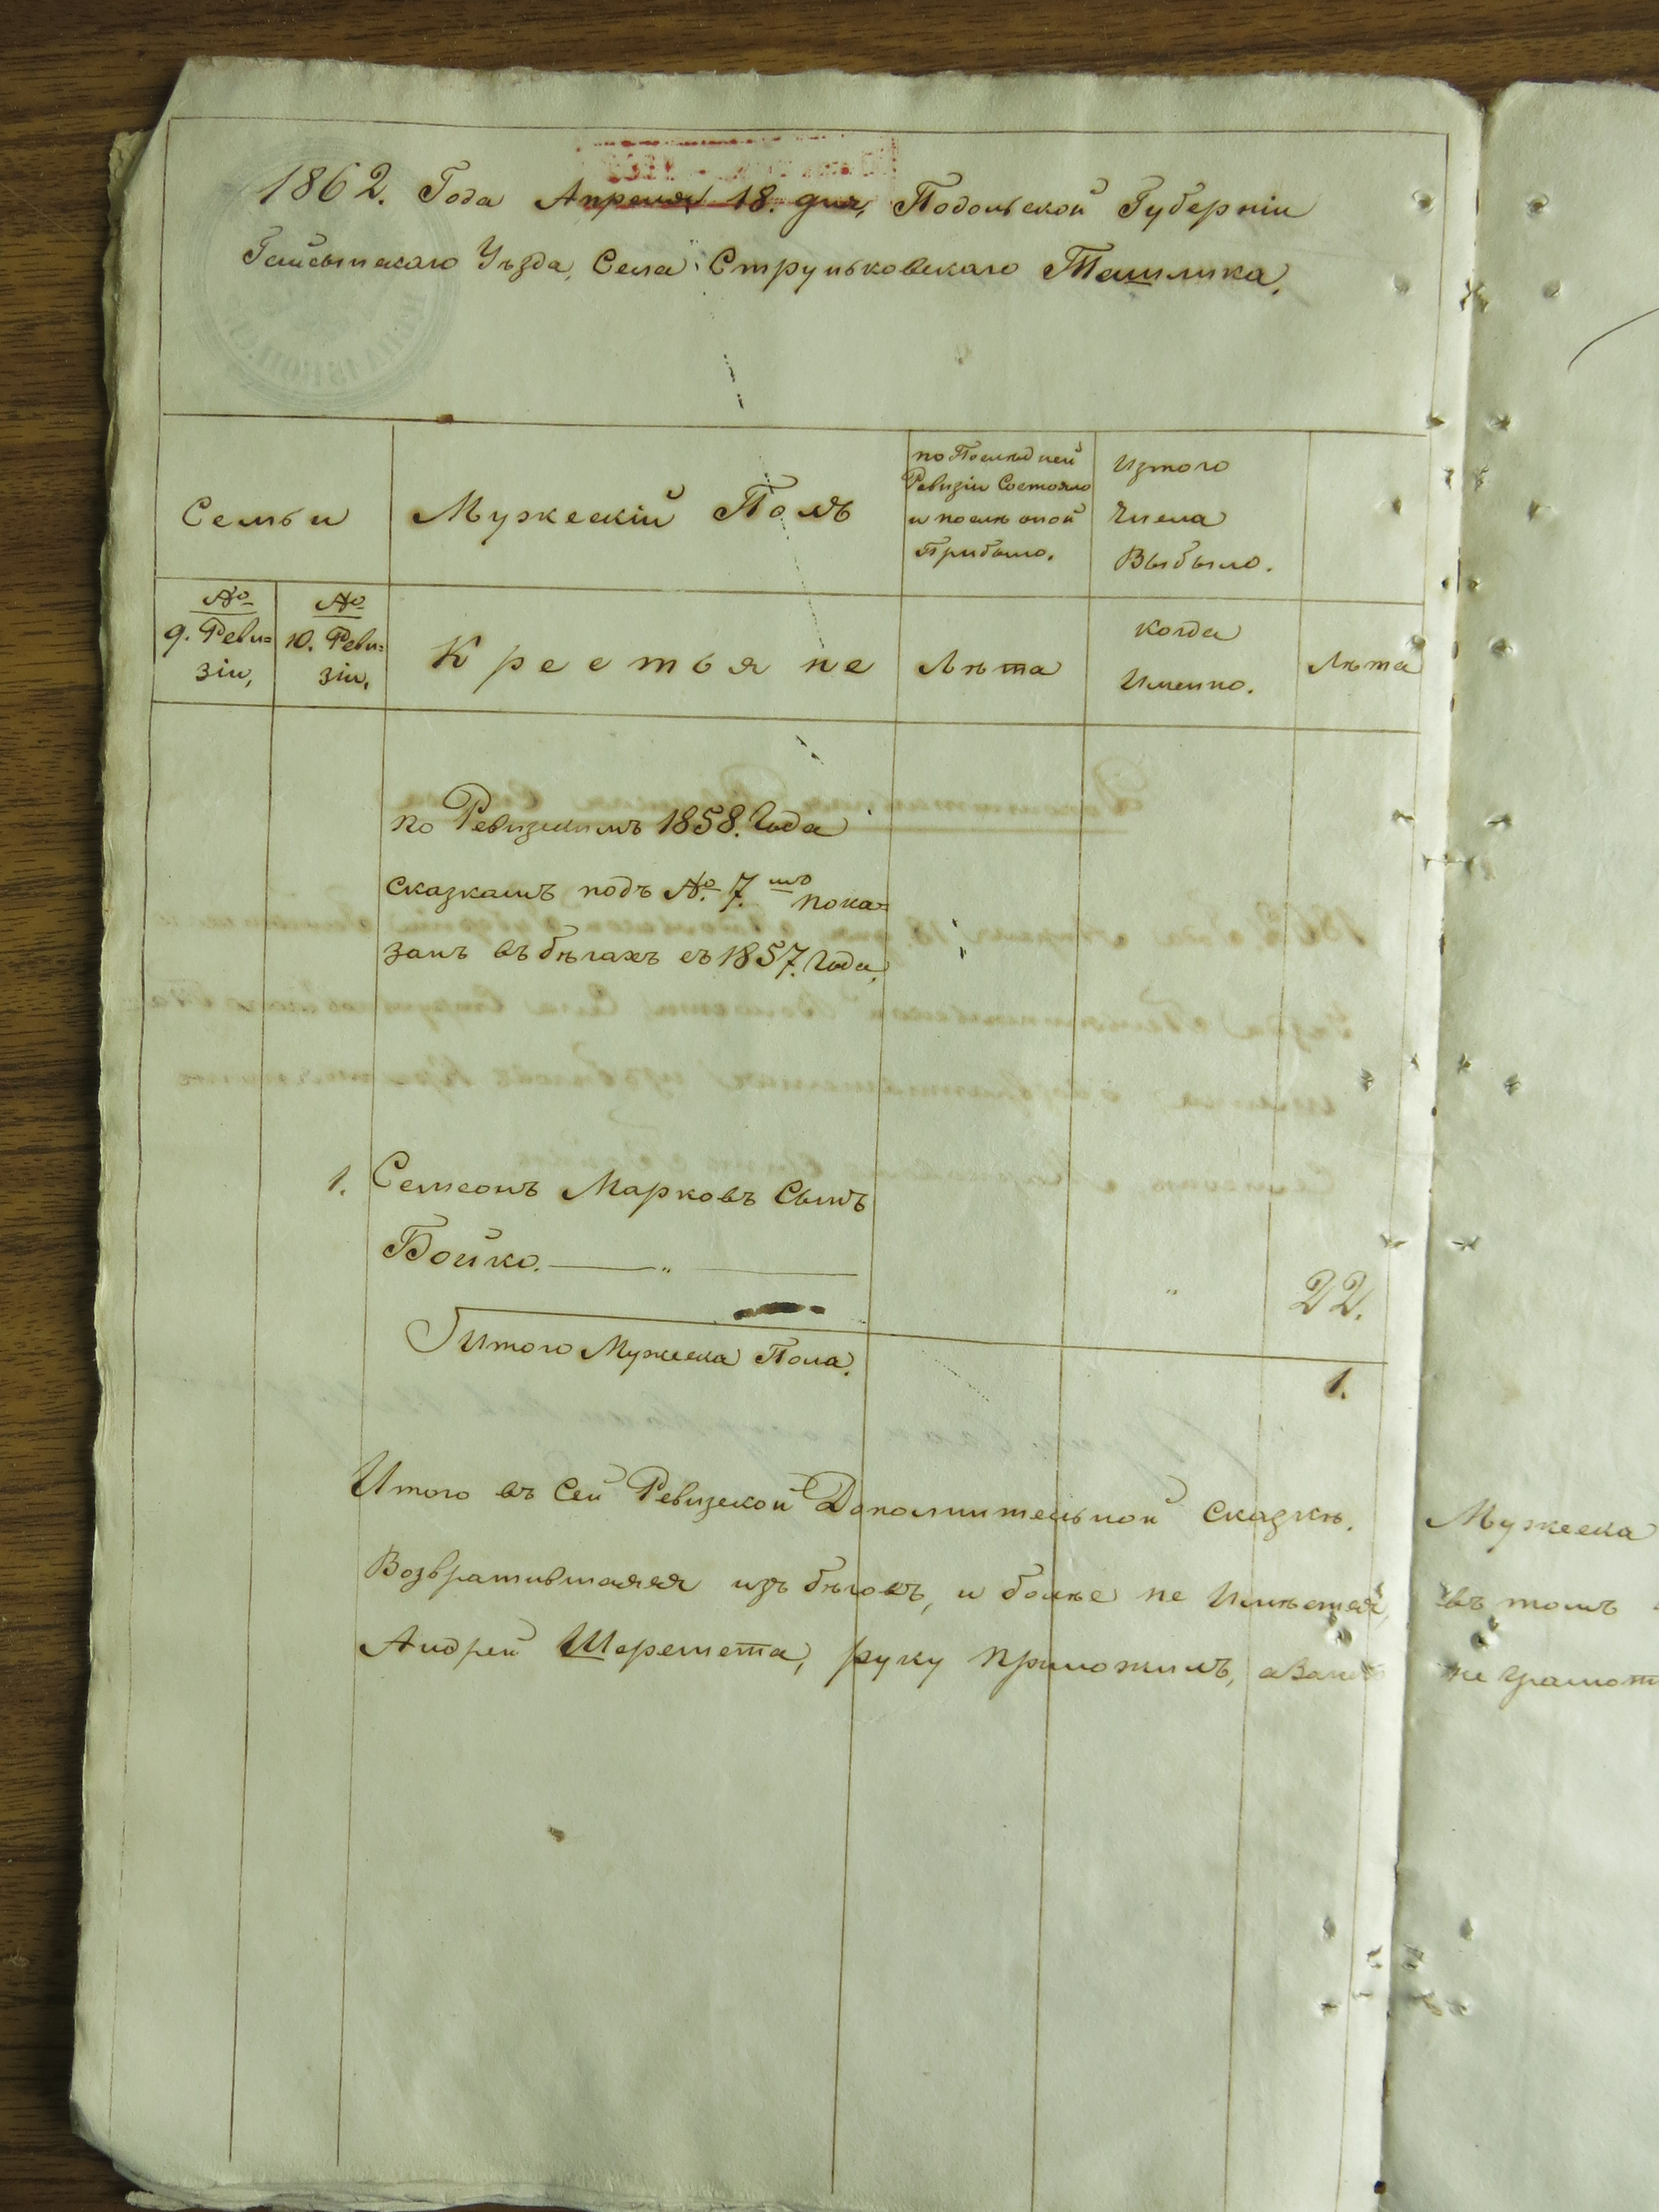 1862. Года Апреля 18. дня, Подольской Губерніи
Гайсынскаго Уѣзда, Села Струньковскаго Ташлика,
Семьи
Мужескій Полъ
по Последней
Ревизіи Состояло
и послѣ оной
Прибыло.
Изтого
Числа
Выбыло.
№
9. Реви=
зіи,
№
10. Реви=
зіи,
Крестьяне
Лѣта
когда
Именно.
Лѣта
по Ревизкимъ 1858. Года
сказкамъ подъ №. 7. мъ пока=
занъ въ бѣгахъ съ 1857. Года,
1. Семеонъ Марковъ Сынъ
Бойко. 22.
Итого Мужеска Пола. 1.
Итого въ Сей Ревизской Дополнительной Сказкѣ. Мужеска
Возвратившаяся изъ бѣговъ, и болѣе не Имѣется, въ томъ
Андрей Шеремета, руку приложилъ, не грамот